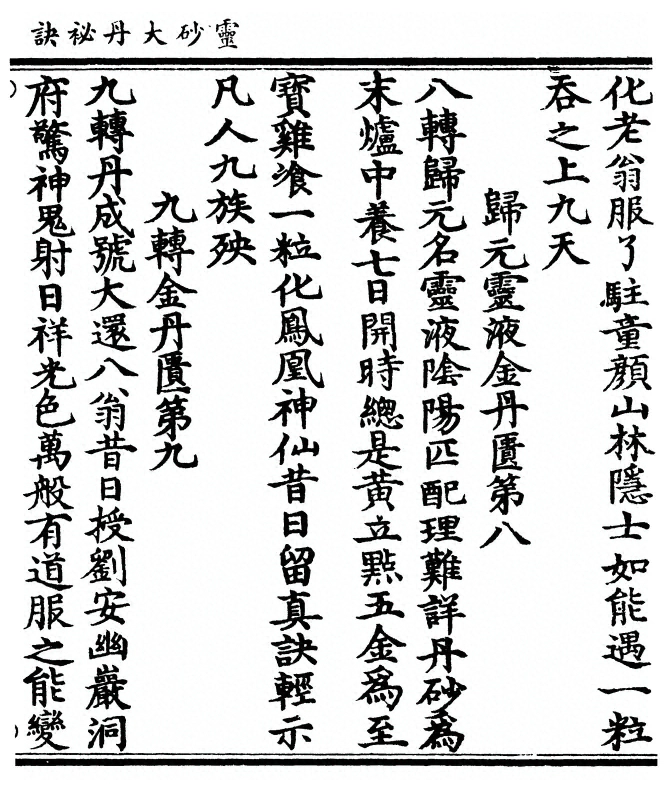 靈砂大丹祕訣
化老翁服了駐童顏山林隱士如能遇一粒
吞之上九天
歸元靈液金丹匱第八
八轉歸元名靈液陰陽匹配理難詳丹砂為
末爐中養七日開時總是黃立點五金為至
寶雞飡一粒化鳳凰神仙昔日留真訣輕示
凡人九族殃
九轉金丹匱第九
九轉丹成號大還八翁昔日授劉安幽巖洞
府驚神鬼射日祥光色萬般有道服之能變